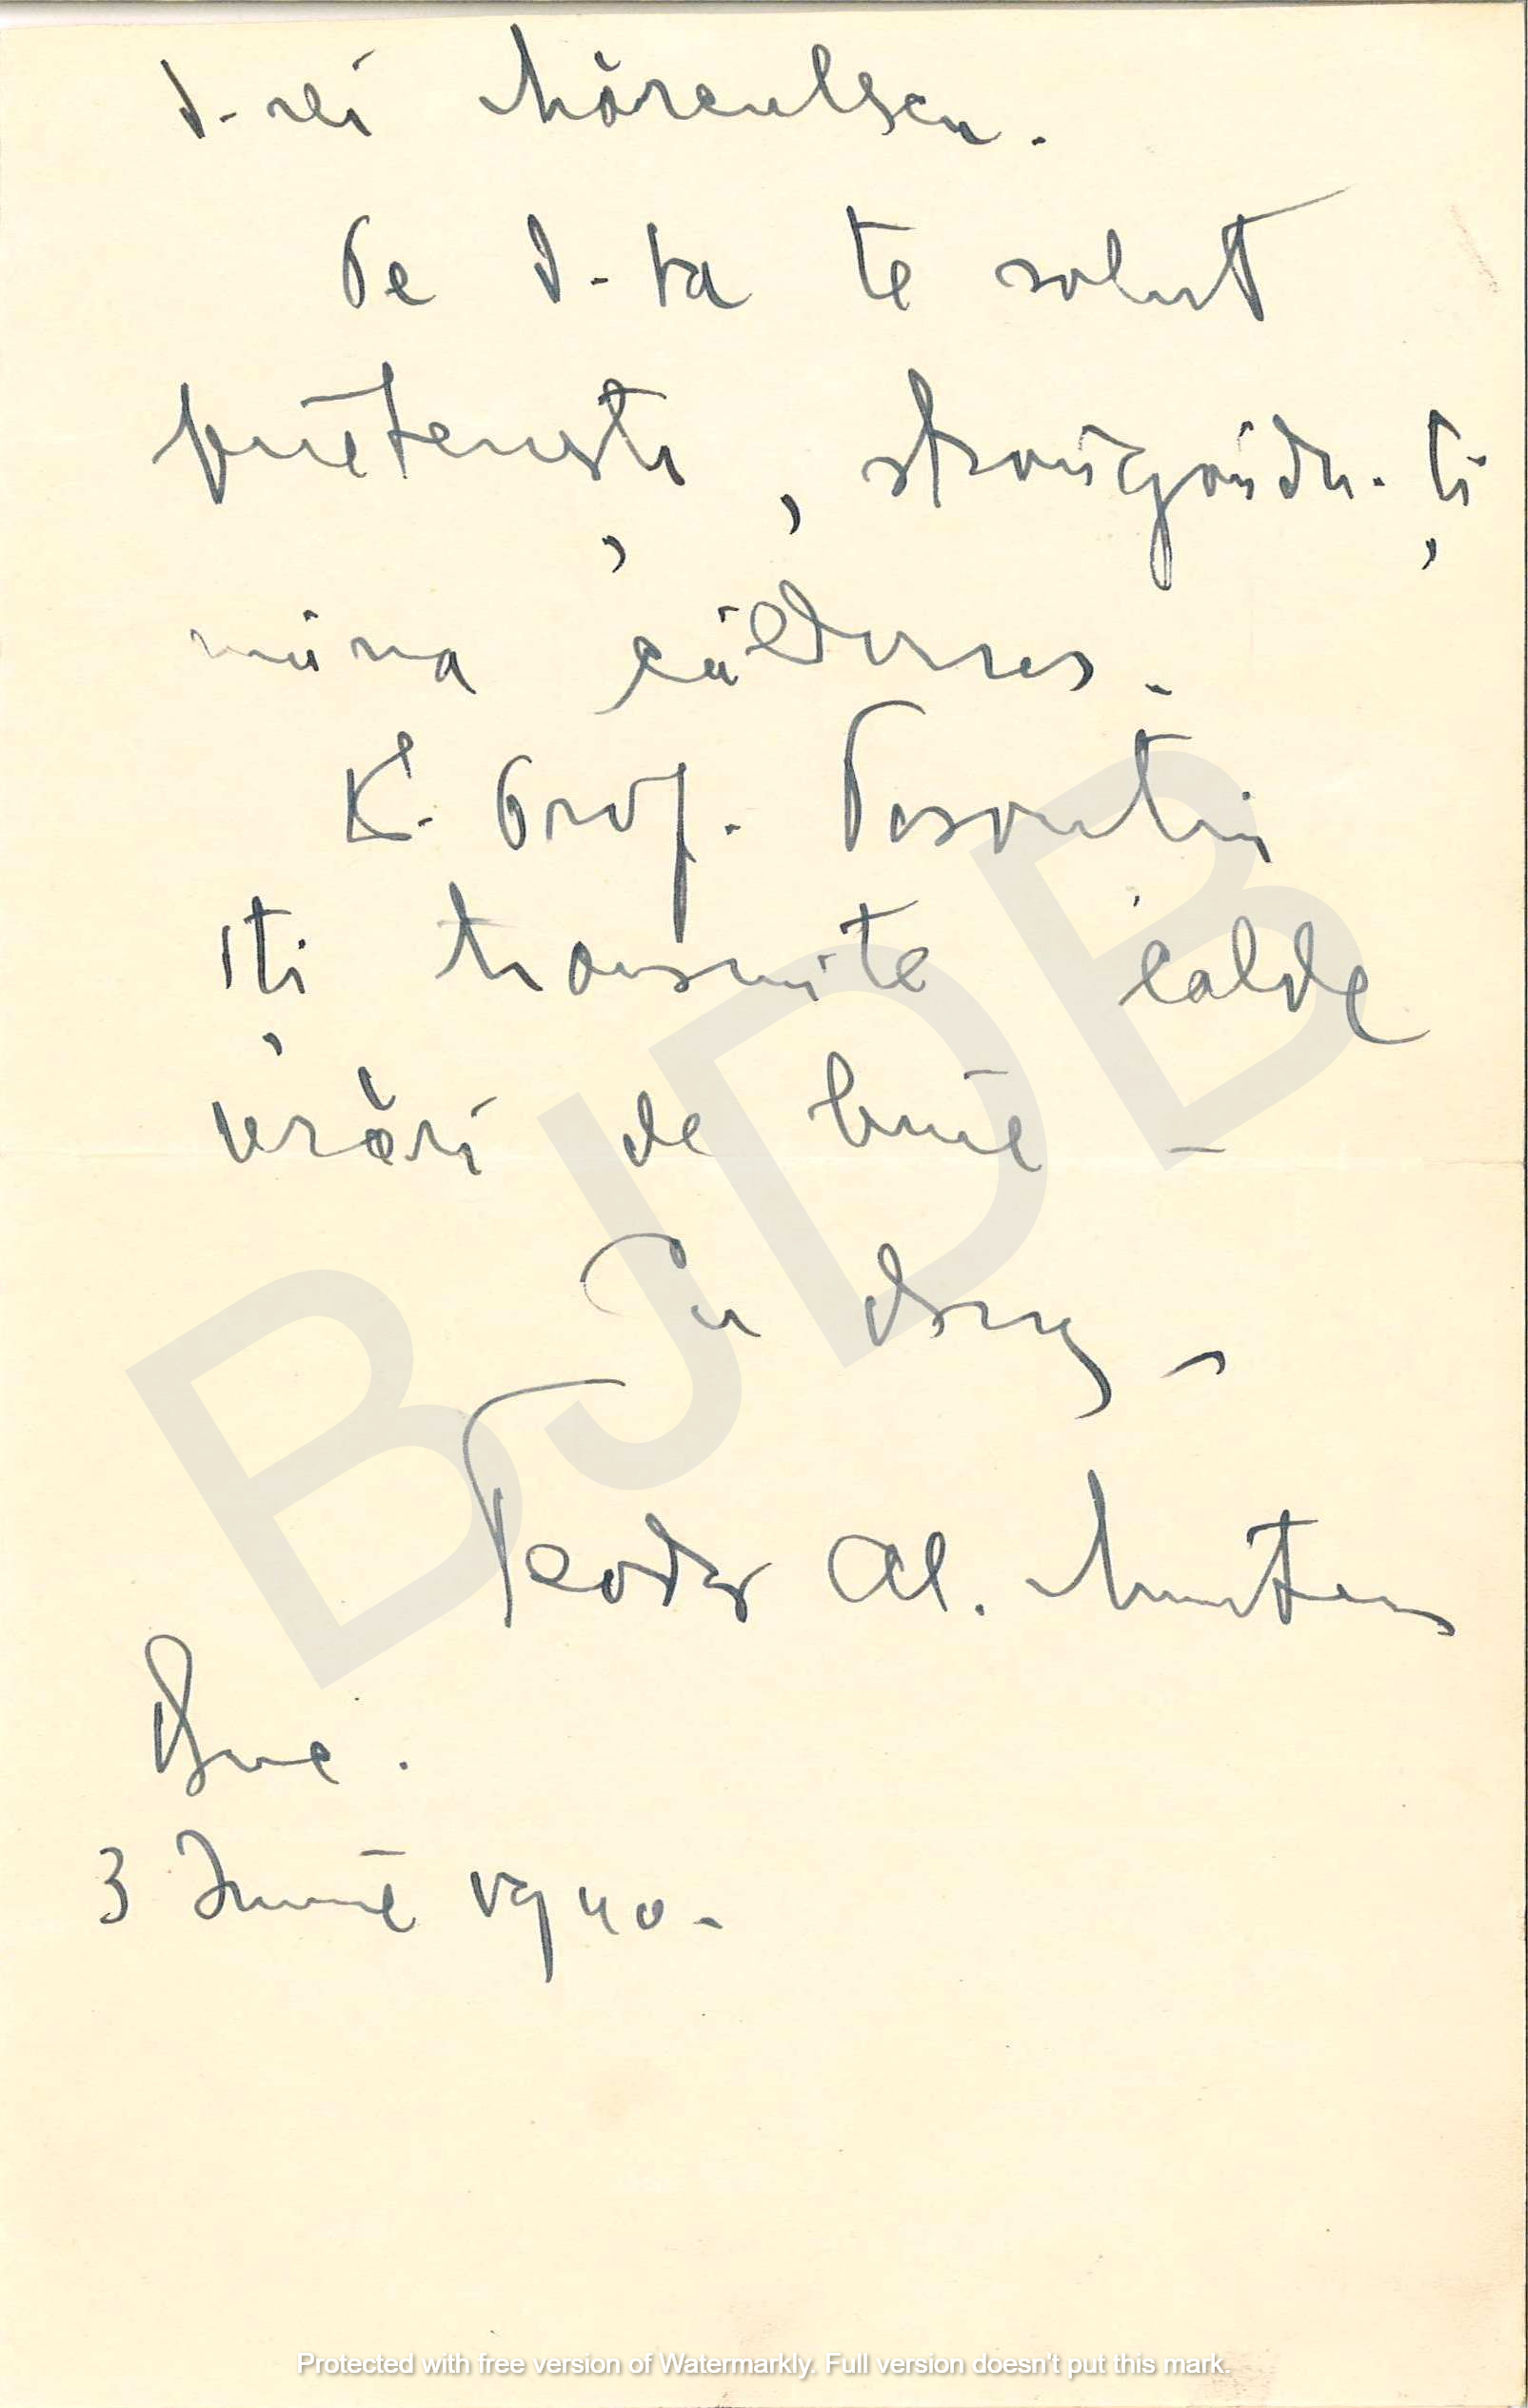 d-rei Mărculescu.
Pe D-ta te salut
prietenește, strângându-ți
mâna călduros.
Prof.
îți transmite calde
urări de bine –
Cu drag –
Teodor Al. Munteanu
Buc.
3 Iunie 1940.
BJDB
Protected with free version of Watermarkly. Full version doesn't put this mark.